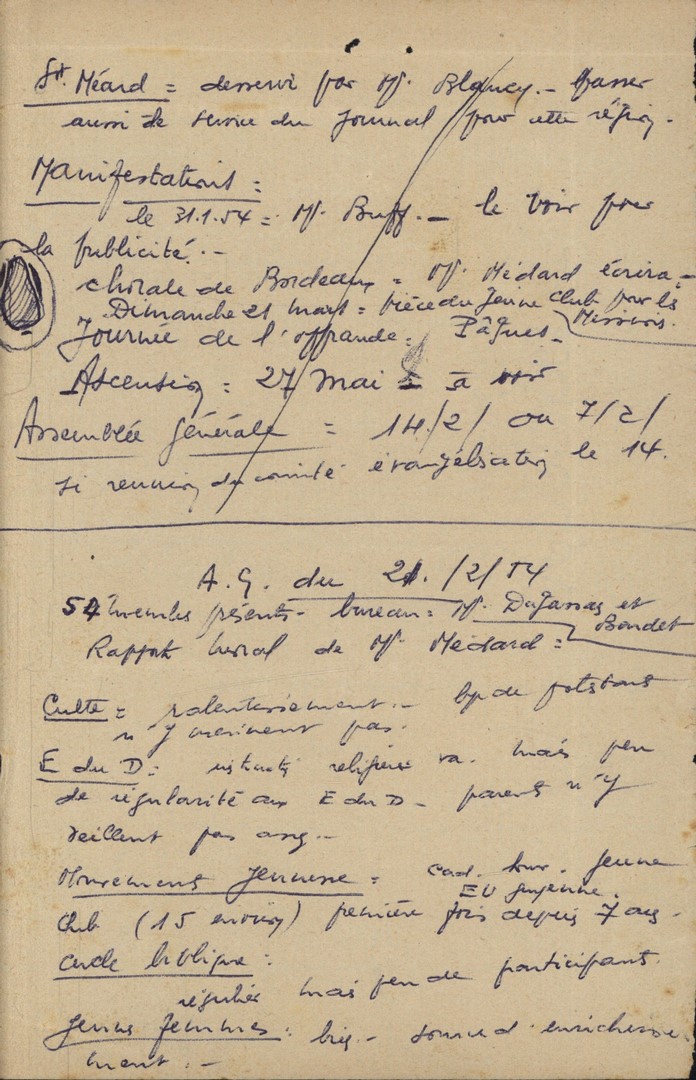 St. Méard = desservi par Mr. Blancy. - Passer
aussi le service du Journal pour cette région.
Manifestations =
le 31.1.54 = Mr. Buff. - le voir pour
la publicité. -
chorale de Bordeaux = Mr. Médard écrira -
Dimanche 21 mars = Pièce du Jeune Club pour les Missions.
Journée de l'offrande = Pâques -
Ascension = 27 mai à voir
Assemblée Générale = 14/2/ ou 7/2/
si reunion du comité évangélisation le 14.
A.G. du 21./2/54
54 membres présents - bureau = Mr. Dugarras et
Boudet
Rapport moral de Mr Médard =
Culte = ralentissement. - bp de protestants
n'y viennent pas.
E du D: religieuse va. mais peu
de régularité aux E du D - parents n'y
veillent pas assez. -
Mouvements Jeunesse = cad. Jeune
EU guyenne.
Club (15 environ) première fois depuis 7 ans.
cercle biblique :
régulier mais peu de participants
Jeunes femmes : bien - source d'enrichisse
ment. -